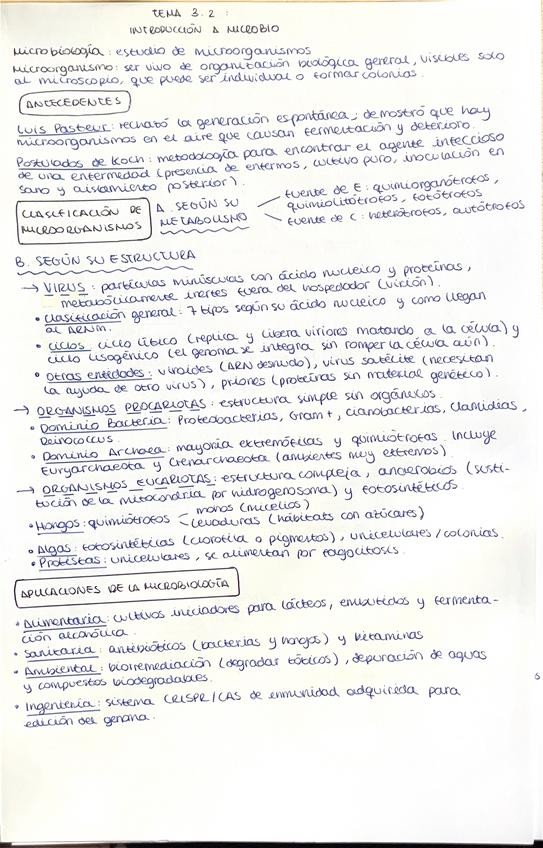 TEMA 3.2 :
INTRODUCCIÓN A MICROBIO
Microbiología: estudio de microorganismos
Microorganismo: ser vivo de organización biológica general, visibles solo
al microscopio, que puede ser individual o formar colonias.
ANTECEDENTES
Luis Pasteur: rechazó la generación espontánea; demostró que hay
microorganismos en el aire que causan fermentación y deterioro.
Postulados de Koch: metodología para encontrar el agente infeccioso
de una enfermedad (presencia de enfermos, cultivo puro, inoculación en
sano y aislamiento posterior).
CLASIFICACIÓN DE MICROORGANISMOS
A. SEGÚN SU METABOLISMO
fuente de E: quimiorganótrofos,
quimiolitótrofos, fotótrofos
fuente de C: heterótrofos, autótrofos
B. SEGÚN SU ESTRUCTURA
→ VIRUS: partículas minúsculas con ácido nucleico y proteínas,
metabólicamente inertes fuera del hospedador (virión).
• Clasificación general: 7 tipos según su ácido nucleico y como llegan
al ARNm.
• Ciclos: ciclo lítico (replica y libera viriones matando a la célula) y
ciclo lisogénico (el genoma se integra sin romper la célula aún).
• Otras entidades: viroides (ARN desnudo), virus satélite (necesitan
la ayuda de otro virus), priones (proteínas sin material genético).
→ ORGANISMOS PROCARIOTAS: estructura simple sin orgánulos.
• Dominio Bacteria: Proteobacterias, Gram+, cianobacterias, Clamideas,
Deinococcus.
• Dominio Archaea: mayoría extremófilas y quimiótrofas. Incluye
Euryarchaeota y Crenarchaeota (ambientes muy extremos).
→ ORGANISMOS EUCARIOTAS: estructura compleja, anaerobios (susti-
tución de la mitocondria por hidrogenosoma) y fotosintéticos.
• Hongos: quimiótrofos
mohos (micelios)
levaduras (hábitats con azúcares)
• Algas: fotosintéticas (clorofila o pigmentos), unicelulares/colonias.
• Protistas: unicelulares, se alimentan por fagocitosis.
APLICACIONES DE LA MICROBIOLOGÍA
• Alimentaria: cultivos iniciadores para lácteos, embutidos y fermenta-
ción alcohólica.
• Sanitaria: antibióticos (bacterias y hongos) y vitaminas
• Ambiental: biorremediación (degradar tóxicos), depuración de aguas
y compuestos biodegradables.
• Ingeniería: sistema CRISPR/CAS de inmunidad adquirida para
edición del genoma.